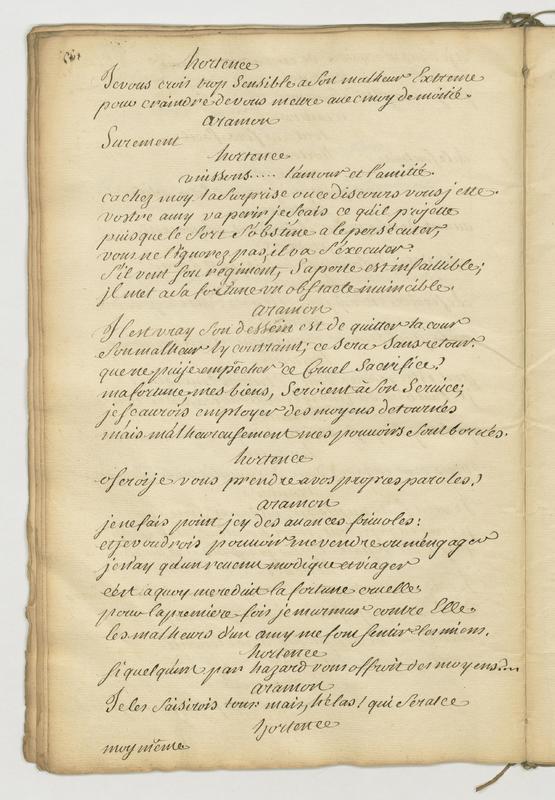 hortence
Je vous crois trop Sensible a Son malheur Extreme
pour craindre de vous mettre avec moy de moitié.
aramon
Surement
hortence
unissons..... l'amour et l'amitié.
cachez moy la Surprise ou ce discours vous jette.
vostre amy va perir je scais ce quil projette
puisque le Sort S'obstine a le persecuter,
vous ne l'ignorez pas, il va S'executer.
S'il vent Son regiment, Sa perte est infaillible;
jl met a Sa fortune un obstacle invincible.
aramon
Jl est vray Son dessein est de quitter la cour
Son malheur ly contraint; ce Sera Sans retour.
que ne puije empêcher ce Cruel Sacrifice!
ma fortune, mes biens, Seroient à Son Service;
je scaurois employer des moyens detournés
mais malheureusement mes pouvoirs Sont bornés.
hortence
oseroije vous prendre a vos propres paroles?
aramon
je ne fais point jcy des avances frivoles:
et je voudrois pouvoir me vendre ou m'engager
je n'ay qu'un revenu modique et viager
c'est a quoy me reduit la fortune cruelle.
pour la premiere fois je murmure contre Elle.
les malheurs d'un amy me font Sentir les miens.
hortence
Si quelqu'un par hazard vous offroit des moyens....
aramon
Je les Saisirois tous mais, hélas! qui Sera ce
hortence
moy même